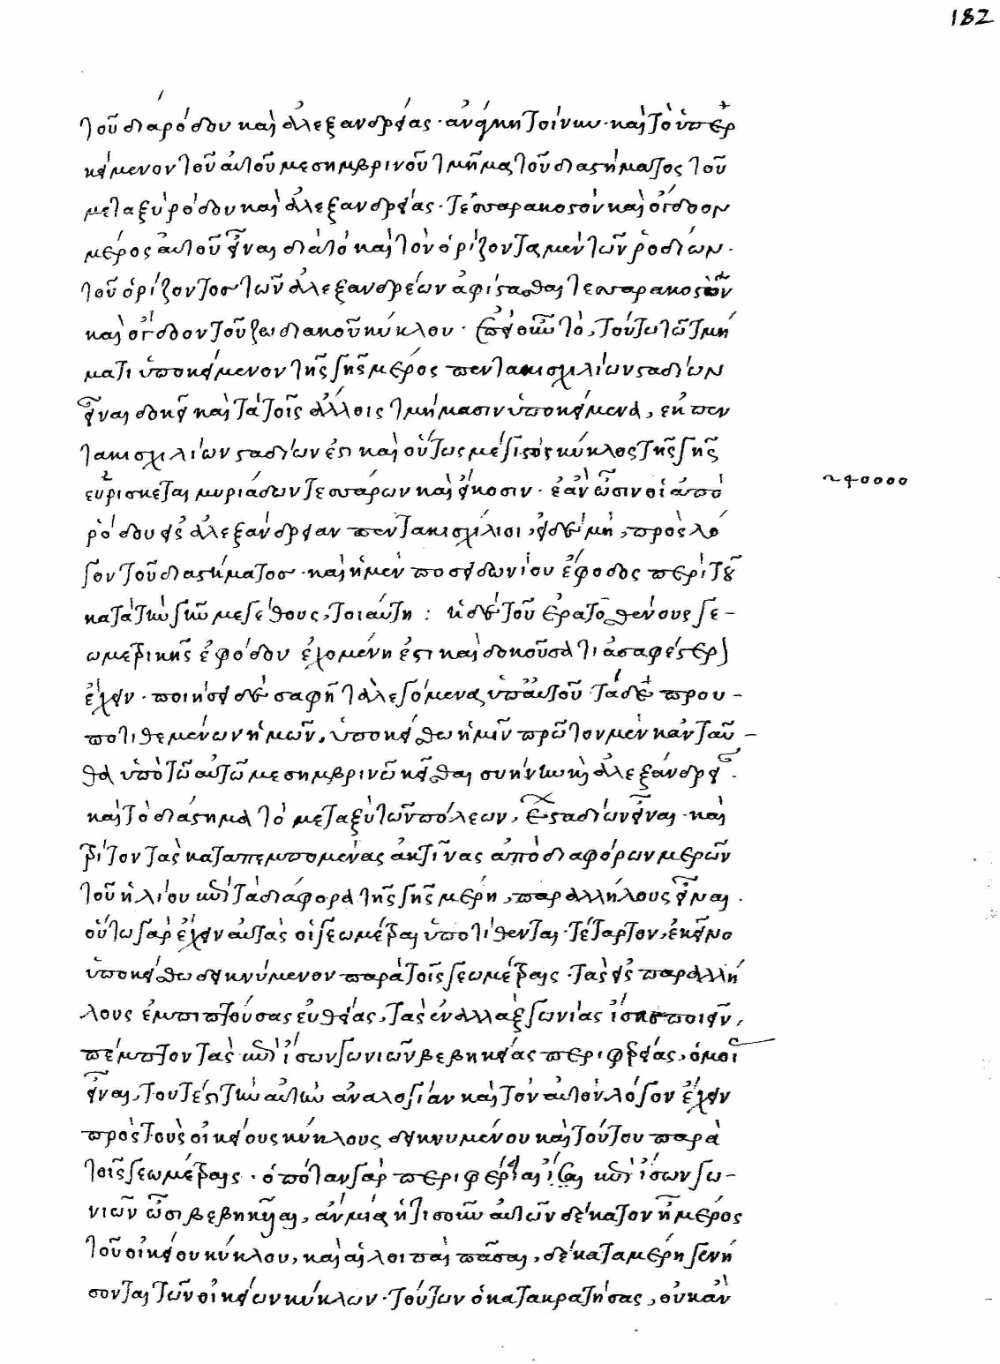 182
τοῦ διὰ ῥόδου καὶ ἀλεξανδρείας· ἀνάγκη τοίνυν καὶ τὸ ὑπερ
κείμενον τοῦ αὐτοῦ μεσημβρινοῦ τμῆμα τοῦ διαστήματος τοῦ
μεταξὺ ῥόδου καὶ ἀλεξανδρείας· τεσσαρακοστὸν καὶ ὄγδοον
μέρος αὐτοῦ εἶναι διὰ τὸ καὶ τὸν ὁρίζοντα μὲν τῶν ῥοδίων·
τοῦ ὁρίζοντος τῶν ἀλεξανδρέων ἀφίστασθαι τεσσαρακοστὸν
καὶ ὄγδοον τοῦ ζωδιακοῦ κύκλου· ἐπεὶ οὖν τὸ, τούτω τῶ τμή
ματι ὑποκείμενον τῆς γῆς μέρος πεντακισχιλίων σταδίων
εἶναι δοκεῖ καὶ τὰ τοῖς ἄλλοις τμήμασιν ὑποκείμενα, ἐκ πεν
τακισχιλίων σταδίων ἐστὶ καὶ οὕτως μέγιστος κύκλος τῆς γῆς
εὑρίσκεται μυριάδων τεσσάρων καὶ εἴκοσιν· ἐὰν ὦσιν οἱ ἀπὸ
240000
ῥόδου εἰς ἀλεξάνδρειαν πεντακισχίλιοι, εἰ δὲ μὴ, πρὸς λό
γον τοῦ διαστήματος· καὶ ἡ μὲν ποσειδωνίου ἔφοδος περὶ τοῦ
κατὰ τὴν γῆν μεγέθους, τοιαύτη: ἡ δὲ τοῦ ἐρατοσθένους γε-
ωμετρικῆς ἐφόδου ἐχομένη ἐστὶ καὶ δοκοῦσά τι ἀσαφέστερ
ἔχειν· ποιήσει δὲ σαφῆ τὰ λεγόμενα ὑπ' αὐτοῦ τάδε πρου-
ποτιθεμένων ἡμῶν, ὑποκείσθω ἡμῖν πρῶτον μὲν κἀνταῦ-
θα ὑπὸ τῶ αὐτῶ μεσημβρινῶ κεῖσθαι συήνην καὶ ἀλεξάνδρει
καὶ τὸ διάστημα τὸ μεταξὺ τῶν πόλεων, ͵ε σταδίων εἶναι· καὶ
τρίτον τὰς καταπεμπομένας ἀκτῖνας ἀπὸ διαφόρων μερῶν
τοῦ ἡλίου ἐπὶ τὰ διάφορα τῆς γῆς μέρη, παραλλήλους εἶναι·
οὕτω γὰρ ἔχειν αὐτὰς οἱ γεωμέτραι ὑποτίθενται· τέταρτον, ἐκεῖνο
ὑποκείσθω δεικνύμενον παρὰ τοῖς γεωμέτραις· τὰς εἰς παραλλή
λους ἐμπιπτούσας εὐθείας, τὰς ἐναλλὰξ γωνίας ἴσας ποιεῖν,
πέμπτον τὰς ἐπὶ ἴσων γωνιῶν βεβηκείας περιφερείας, ὁμοί
εἶναι, τουτέστι τὴν αὐτὴν ἀναλογίαν καὶ τὸν αὐτὸν λόγον ἔχειν
πρὸς τοὺς οἰκείους κύκλους δεικνυμένου καὶ τούτου παρὰ
τοῖς γεωμέτραις· ὁπόταν γὰρ περιφέρειαι ἐπὶ ἴσων γω-
νιῶν ὦσι βεβηκυῖαι, ἂν μία ἡτισοῦν αὐτῶν δέκατον ἦ μέρος
τοῦ οἰκείου κύκλου, καὶ αἱ λοιπαὶ πᾶσαι, δέκατα μέρη γενή
σονται τῶν οἰκείων κύκλων· τούτων ὁ κατακρατήσας, οὐκ ἂν